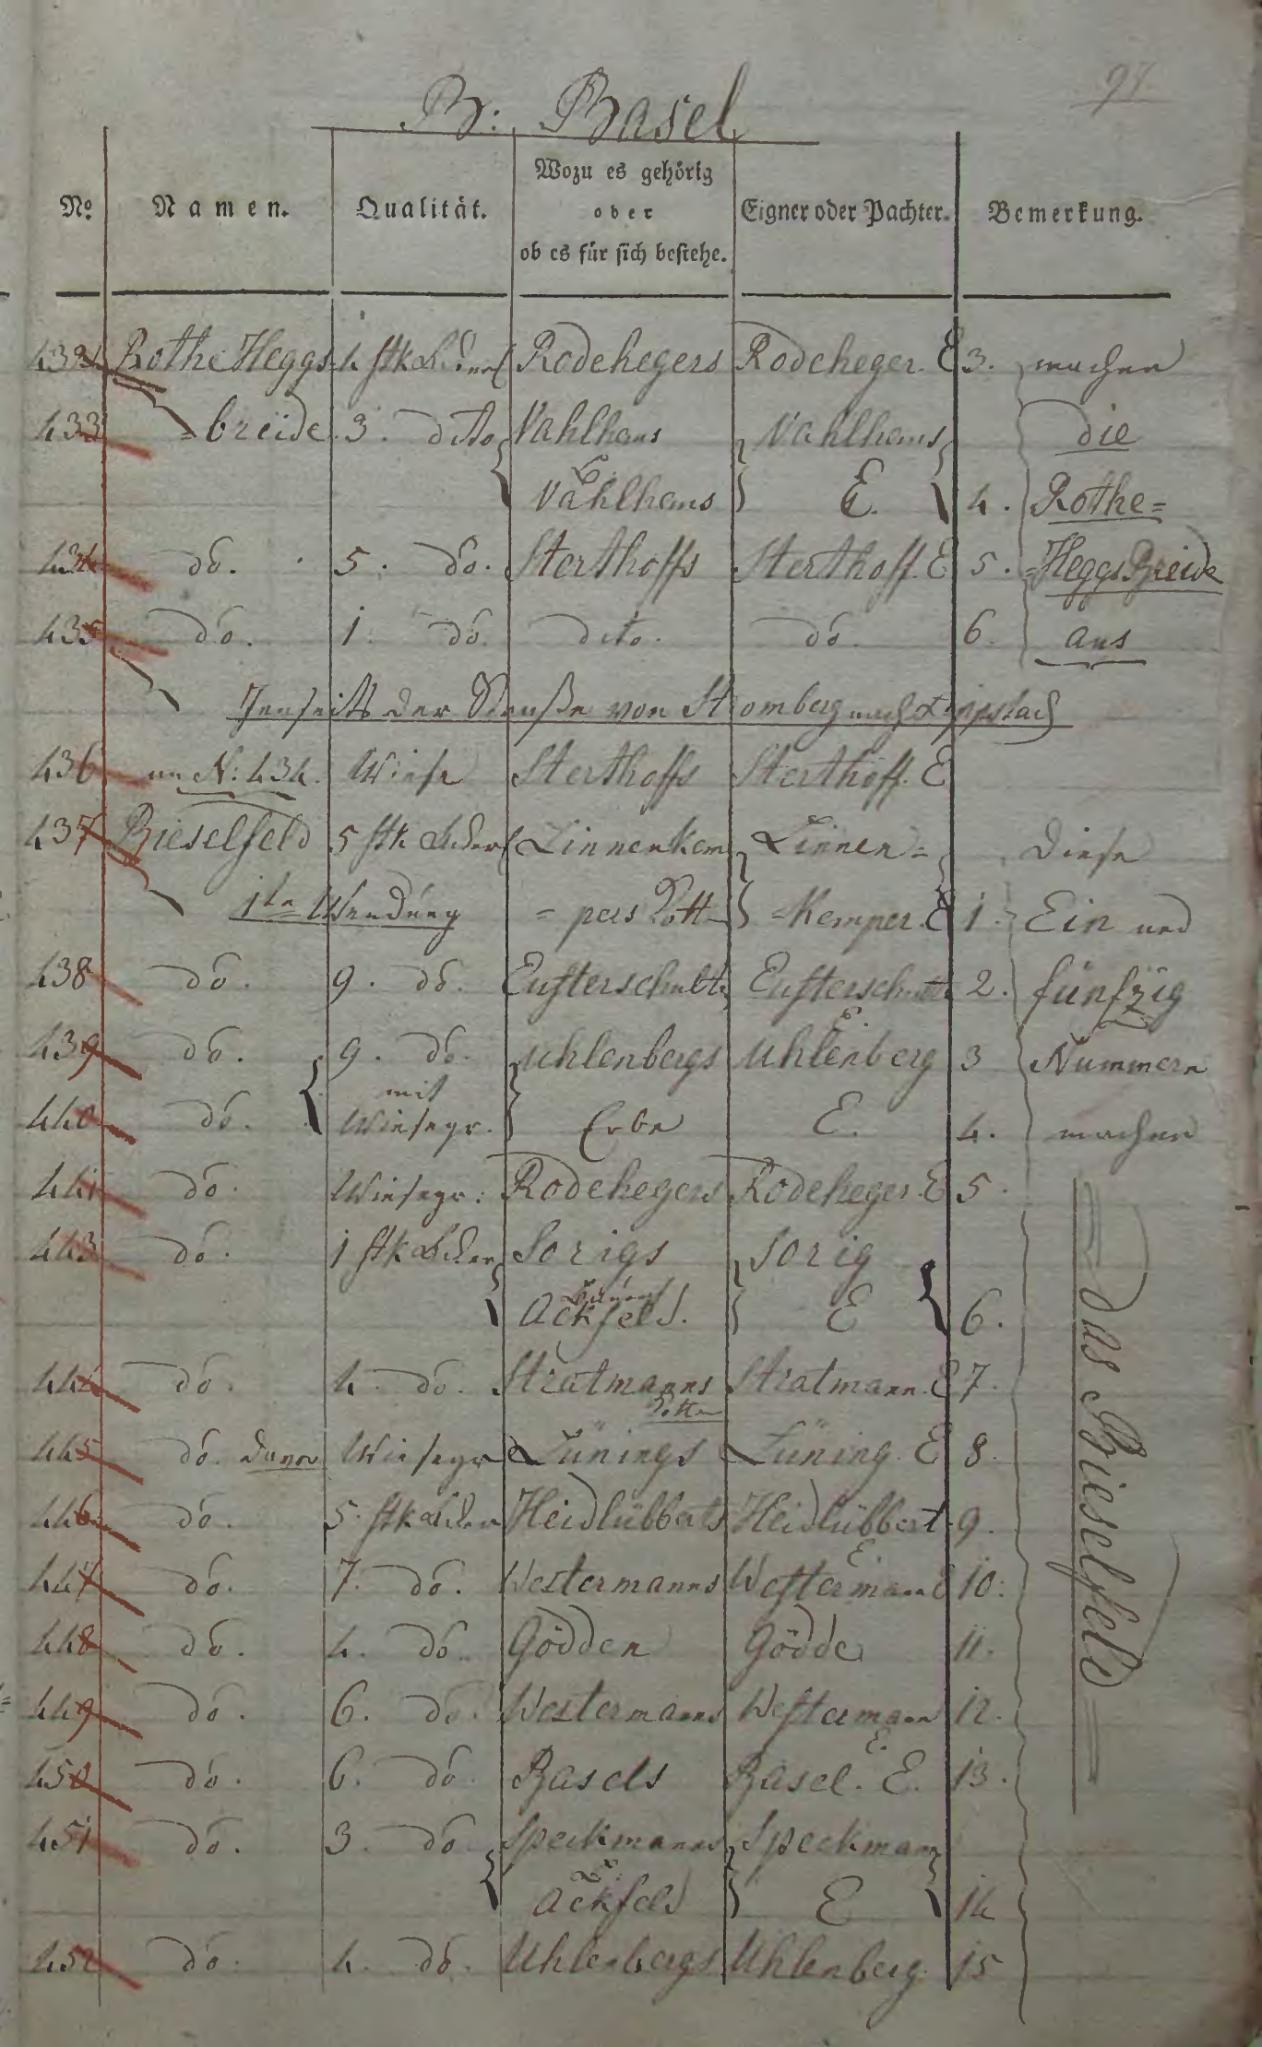 97.
B: Basel
No Namen. Qualität. Wozu es gehörig oder ob es für sich bestehe. Eigner oder Pachter. Bemerkung.
432 Rothe Heggs= 4 stk Äcker Rodehegers Rodeheger. E 3. machen
433 =breide 3. dito Vahlhaus Vahlhaus die
Vahlhaus E. 4. Rothe=
434 do. 5. do. Sterthoffs Sterthoff. E 5. =Heggs Breide
435 do. 1. do. dito. do. 6. aus
Jenseits der Straße von Stromberg nach Lippstadt
436 an N: 434. Wiese Sterthoffs Sterthoff. E
437 Bieselfeld 5 stk Äcker Linnenkem Linnen= Diese
1te Wendung =pers Kott =Kemper. E 1. Ein und
438 do. 9. do. Eusterschult Eusterschulte E. 2. fünfzig
439 do. 9. do. Uhlenbergs Uhlenberg 3 Nummern
440 do. mit Wiesegr. Erbe E. 4. machen
441 do. Wiesegr. Rodehegers Rodeheger. E 5.
443 do. 1 stk Äcker Sorigs Sorig
Ackfeld. E 6.
444 do. 4. do. Stratmanns Stratmann. E 7.
Kotten
445 do. Wiesegr Lünings Lüning. E 8.
446 do. 5. stk Äcker Heidlübberts Heidlübbert 9.
E
447 do. 7. do. Westermanns Westermann E 10.
448 do. 4. do. Gödden Gödde 11.
449 do. 6. do. Westermanns Westermann 12.
E.
450 do. 6. do. Basels Basel. E. 13.
451 do. 3. do Speckmanns Speckmann
Ackfeld E 14
452 do. 4. do. Uhlenbergs Uhlenberg. 15
das Bieselfeld